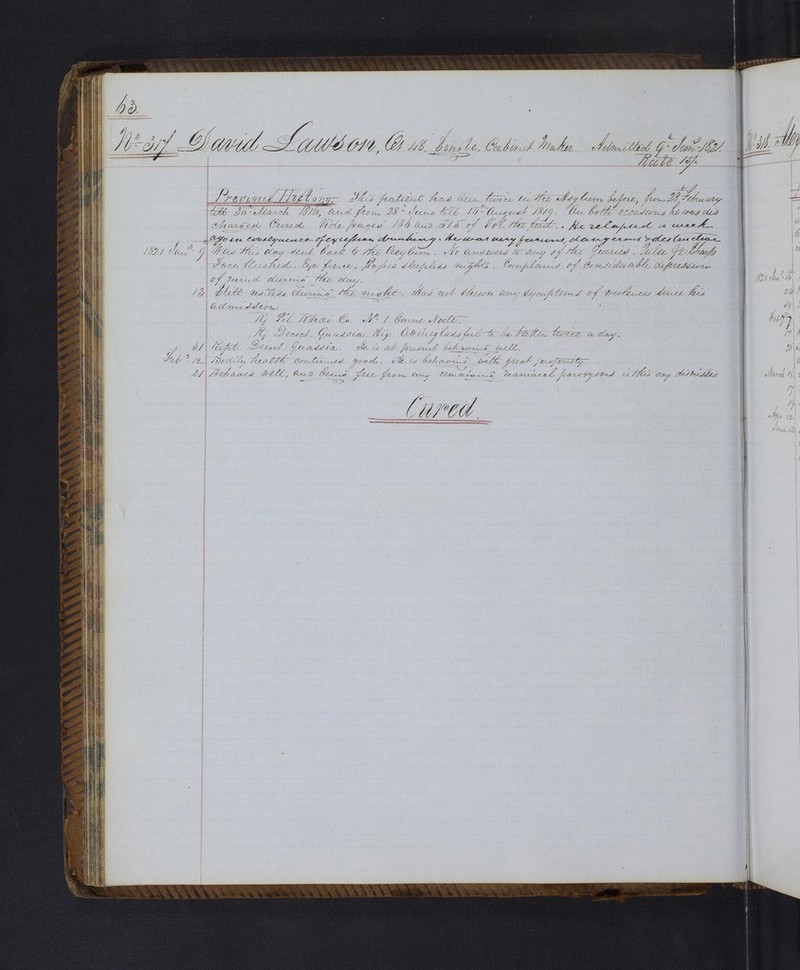 63.
No. 317 David Lawson, Æt 48. Single. Cabinet Maker. Admitted 9th Janry 1821.
Rate 15/.
Previous History. This patient has been twice in the Asylum before, from 23d February
till 30th March 1816, and from 28th June till 16th August 1819. On both occasions he was dis
charged Cured. Vide pages 186 and of Vol. the first. He relapsed a week
ago in consequence of excessive drinking. He was very furious, dangerous & destructive
1821 Janry. 9 Was this day sent back to the Asylum. No answers to any of the Queries. Pulse 92
Face flushed. Eye fierce. Passes sleepless nights. Complains of considerable depression
of mind during the day.
13 Still restless during the night. Has not shewn any symptoms of violence since his
admission.
R/ Pil Rhæi Co. No. 1 Omne Nocte.
R/ Decoct. Quassiæ A wineglassful to be taken twice a day.
21 Rept. Decoct Quassiæ. He is at present behaving well.
Feby. 12 Bodily health continues good. He is behaving with great propriety.
21 Behaves well, and being free from any remaining maniacal paroxysms is this day dismissed
Cured.
No. 318.
1821
March
17
19
Apr 12
June 13